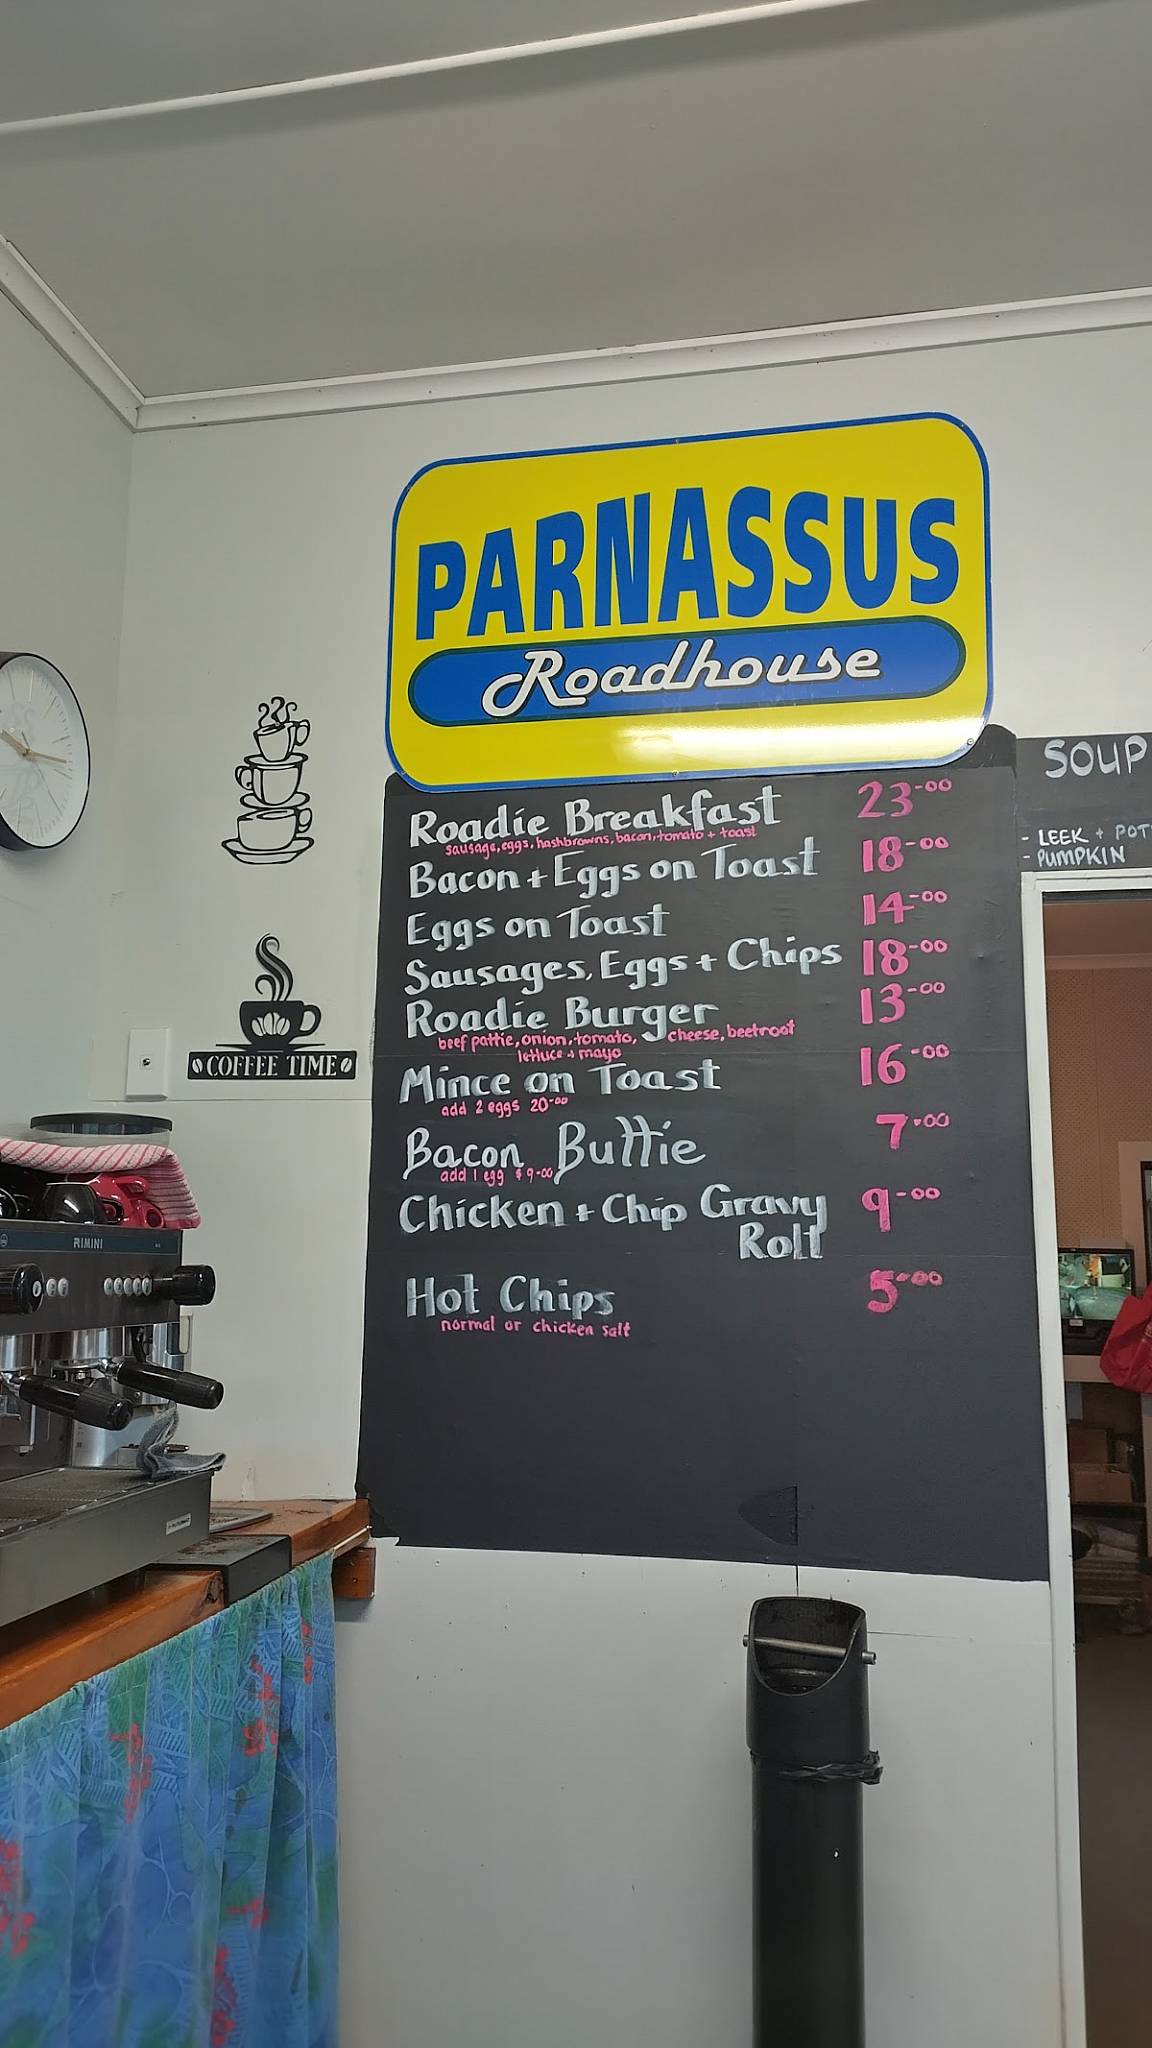 PARNASSUS
Roadhouse
Roadie Breakfast 23-00
sausage, eggs, hashbrowns, bacon, tomato + toast
Bacon + Eggs on Toast 18-00
Eggs on Toast 14-00
Sausages, Eggs + Chips 18-00
Roadie Burger 13-00
beef pattie, onion, tomato, cheese, beetroot
lettuce + mayo
Mince on Toast 16-00
add 2 eggs 20-00
Bacon Buttie 7-00
add 1 egg $9-00
Chicken + Chip Gravy 9-00
Roll
Hot Chips 5-00
normal or chicken salt
SOUP
- LEEK + POT
- PUMPKIN
COFFEE TIME
RIMINI